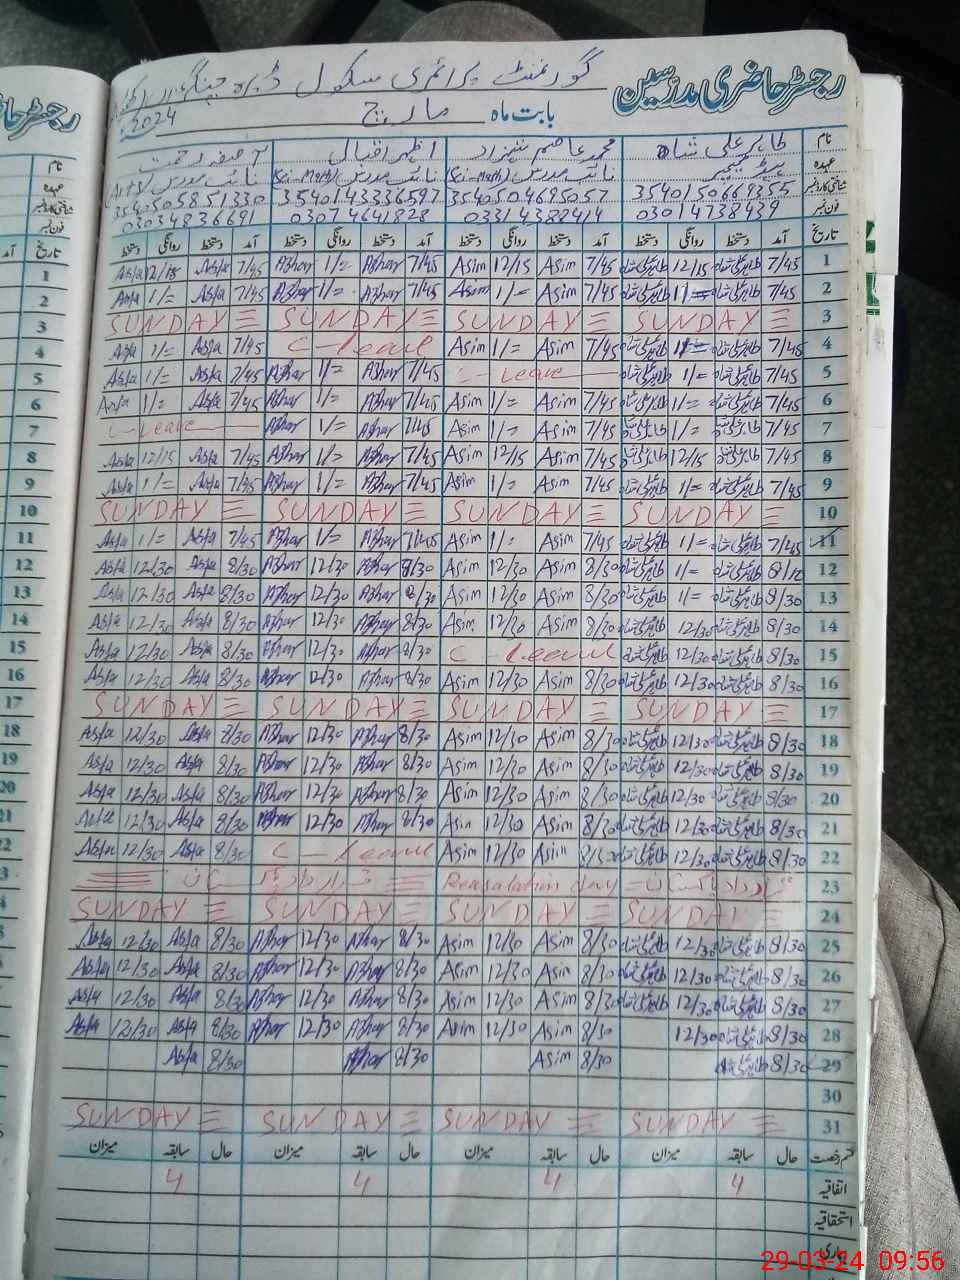 رجسٹر حاضری مدرسین
گورنمنٹ پرائمری سکول ڈیرہ
بابت ماہ مارچ 2024
نام طاہر علی شاہ محمد عاصم شہزاد اظہر اقبال آصفہ رحمت
عہدہ ہیڈ ٹیچر نائب مدرس (Sci-Math) نائب مدرس (Sci-Math) نائب مدرس (Arts)
شناختی کارڈ نمبر 3540150669355 3540504695057 3540143336597 3540505851330
فون نمبر 03014738439 03314388414 03074641828 03034836691
تاریخ آمد دستخط روانگی دستخط آمد دستخط روانگی دستخط آمد دستخط روانگی دستخط آمد دستخط روانگی دستخط
1 7/45 طاہر علی شاہ 12/15 طاہر علی شاہ 7/45 Asim 12/15 Asim 7/45 Azhar 1/= Azhar 7/45 Asfa 12/15 Asfa
2 7/45 طاہر علی شاہ 1/= طاہر علی شاہ 7/45 Asim 1/= Asim 7/45 Azhar 1/= Azhar 7/45 Asfa 1/= Asfa
3 SUNDAY SUNDAY SUNDAY SUNDAY
4 7/45 طاہر علی شاہ 1/= طاہر علی شاہ 7/45 Asim 1/= Asim C-Leave 7/45 Asfa 1/= Asfa
5 7/45 طاہر علی شاہ 1/= طاہر علی شاہ C-Leave 7/45 Azhar 1/= Azhar 7/45 Asfa 1/= Asfa
6 7/45 طاہر علی شاہ 1/= طاہر علی شاہ 7/45 Asim 1/= Asim 7/45 Azhar 1/= Azhar 7/45 Asfa 1/= Asfa
7 7/45 طاہر علی شاہ 1/= طاہر علی شاہ 7/45 Asim 1/= Asim 7/45 Azhar 1/= Azhar C-Leave
8 7/45 طاہر علی شاہ 12/15 طاہر علی شاہ 7/45 Asim 12/15 Asim 7/45 Azhar 1/= Azhar 7/45 Asfa 12/15 Asfa
9 7/45 طاہر علی شاہ 1/= طاہر علی شاہ 7/45 Asim 1/= Asim 7/45 Azhar 1/= Azhar 7/45 Asfa 1/= Asfa
10 SUNDAY SUNDAY SUNDAY SUNDAY
11 7/45 طاہر علی شاہ 1/= طاہر علی شاہ 7/45 Asim 1/= Asim 7/45 Azhar 1/= Azhar 7/45 Asfa 1/= Asfa
12 طاہر علی شاہ 1/= طاہر علی شاہ 8/30 Asim 12/30 Asim 8/30 Azhar 12/30 Azhar 8/30 Asfa 12/30 Asfa
13 8/30 طاہر علی شاہ 1/= طاہر علی شاہ 8/30 Asim 12/30 Asim 8/30 Azhar 12/30 Azhar 8/30 Asfa 12/30 Asfa
14 8/30 طاہر علی شاہ 12/30 طاہر علی شاہ 8/30 Asim 12/30 Asim 8/30 Azhar 12/30 Azhar 8/30 Asfa 12/30 Asfa
15 8/30 طاہر علی شاہ 12/30 طاہر علی شاہ C-Leave 8/30 Azhar 12/30 Azhar 8/30 Asfa 12/30 Asfa
16 8/30 طاہر علی شاہ 12/30 طاہر علی شاہ 8/30 Asim 12/30 Asim 8/30 Azhar 12/30 Azhar 8/30 Asfa 12/30 Asfa
17 SUNDAY SUNDAY SUNDAY SUNDAY
18 8/30 طاہر علی شاہ 12/30 طاہر علی شاہ 8/30 Asim 12/30 Asim 8/30 Azhar 12/30 Azhar 8/30 Asfa 12/30 Asfa
19 8/30 طاہر علی شاہ 12/30 طاہر علی شاہ 8/30 Asim 12/30 Asim 8/30 Azhar 12/30 Azhar 8/30 Asfa 12/30 Asfa
20 8/30 طاہر علی شاہ 12/30 طاہر علی شاہ 8/30 Asim 12/30 Asim 8/30 Azhar 12/30 Azhar 8/30 Asfa 12/30 Asfa
21 8/30 طاہر علی شاہ 12/30 طاہر علی شاہ 8/30 Asim 12/30 Asim 8/30 Azhar 12/30 Azhar 8/30 Asfa 12/30 Asfa
22 8/30 طاہر علی شاہ 12/30 طاہر علی شاہ 8/30 Asim 12/30 Asim C-Leave 8/30 Asfa 12/30 Asfa
23 قرارداد پاکستان = Reasalation day قرارداد پاکستان
24 SUNDAY SUNDAY SUNDAY SUNDAY
25 8/30 طاہر علی شاہ 12/30 طاہر علی شاہ 8/30 Asim 12/30 Asim 8/30 Azhar 12/30 Azhar 8/30 Asfa 12/30 Asfa
26 8/30 طاہر علی شاہ 12/30 طاہر علی شاہ 8/30 Asim 12/30 Asim 8/30 Azhar 12/30 Azhar 8/30 Asfa 12/30 Asfa
27 8/30 طاہر علی شاہ 12/30 طاہر علی شاہ 8/30 Asim 12/30 Asim 8/30 Azhar 12/30 Azhar 8/30 Asfa 12/30 Asfa
28 8/30 طاہر علی شاہ 12/30 8/30 Asim 12/30 Asim 8/30 Azhar 12/30 Azhar 8/30 Asfa 12/30 Asfa
29 8/30 طاہر علی شاہ 8/30 Asim 8/30 Azhar 8/30 Asfa
30
31 SUNDAY SUNDAY SUNDAY SUNDAY
قسم رخصت حال سابقہ میزان حال سابقہ میزان حال سابقہ میزان حال سابقہ میزان
اتفاقیہ 4 4 4 4
استحقاقیہ
بیماری
29-03-24 09:56